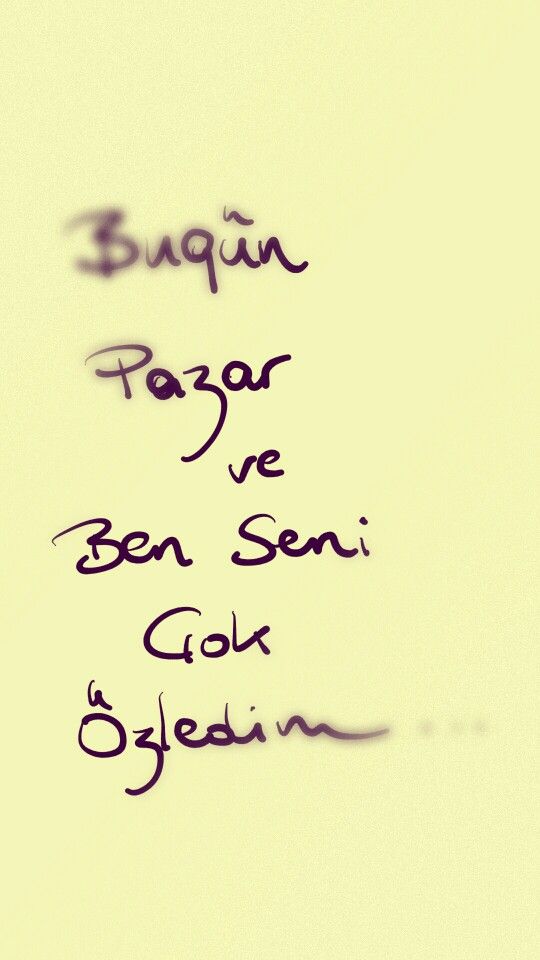 Bugün
Pazar
ve
Ben Seni
Çok
Özledim...